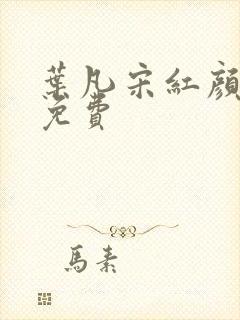 葉凡宋紅顏
免費
馬素